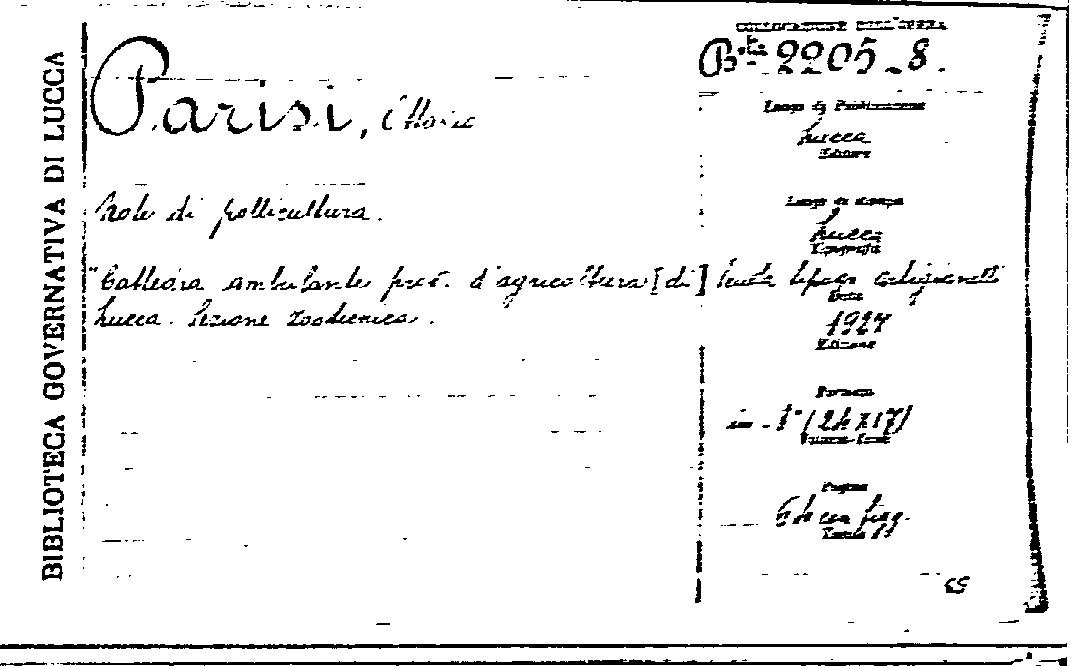 BIBLIOTECA GOVERNATIVA DI LUCCA
COLLOCAZIONE DELL'OPERA
B.ta 2205_8.
Parisi, Ettore
Luogo di Pubblicazione
Lucca
Editore
Note di pollicultura.
Luogo di stampa
Lucca
Tipografia
"Cattedra ambulante prov. d'agricoltura [di]
Lucca. Sezione zootecnica.
Scuola tipogr. artigianelli
Data
1927
Edizione
Formato
in-8° (24x17)
Pagine
con fig.